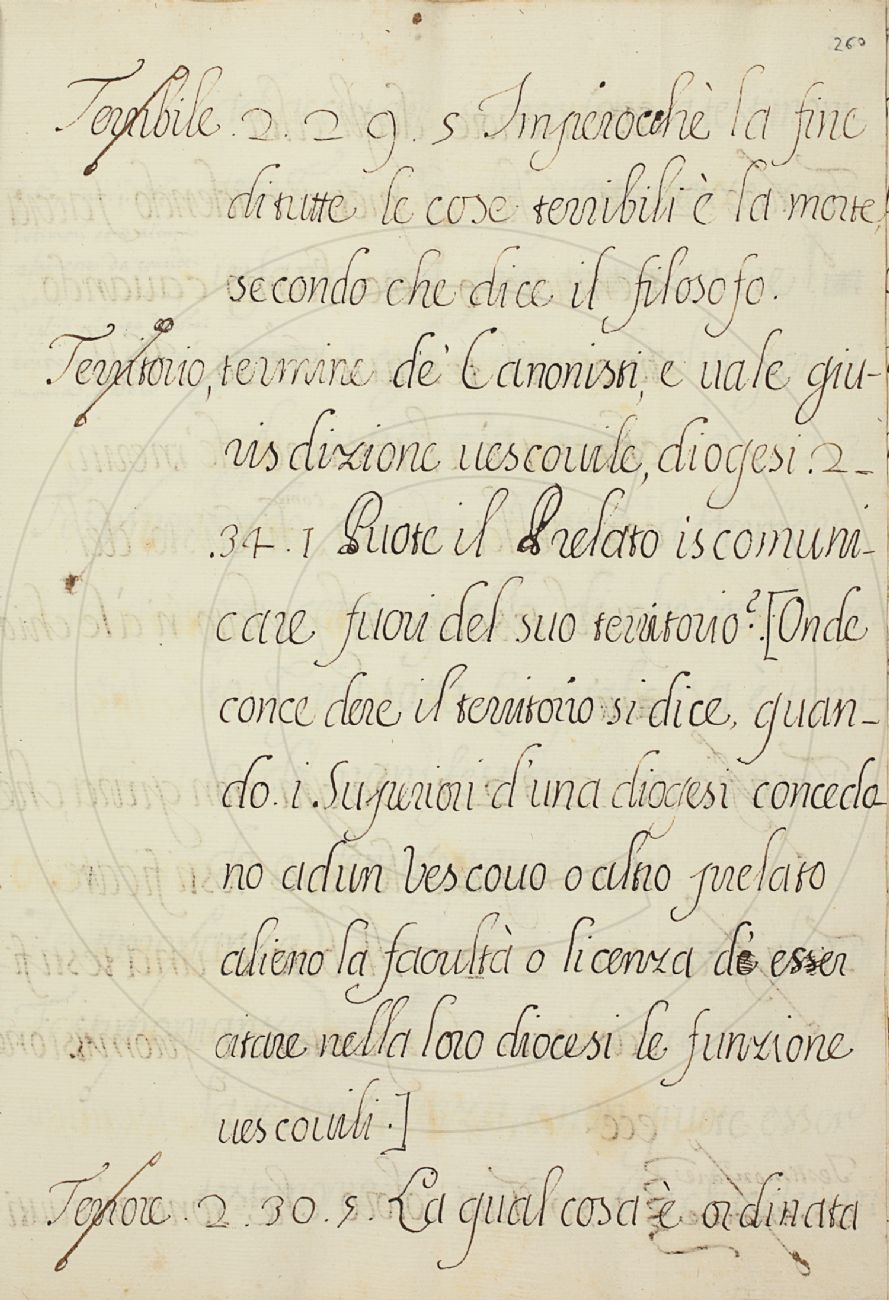 260
Terribile. 2. 29. 5 Imperocchè la fine
di tutte le cose terribili è la morte,
secondo che dice il filosofo.
Territorio, termine de' Canonisti, e uale giu-
risdizione uescouile, diogesi. 2-
.34.1 Puote il Prelato iscomuni-
care fuori del suo territorio?. [Onde
concedere il territorio si dice, quan-
do. i Superiori d'una diogesi conceda-
no ad un Vescouo o altro prelato
alieno la facultà o licenza di esser
citare nella loro diocesi le funzione
uescouili.]
Terrore. 2. 30. 5. La qual cosa è ordinata